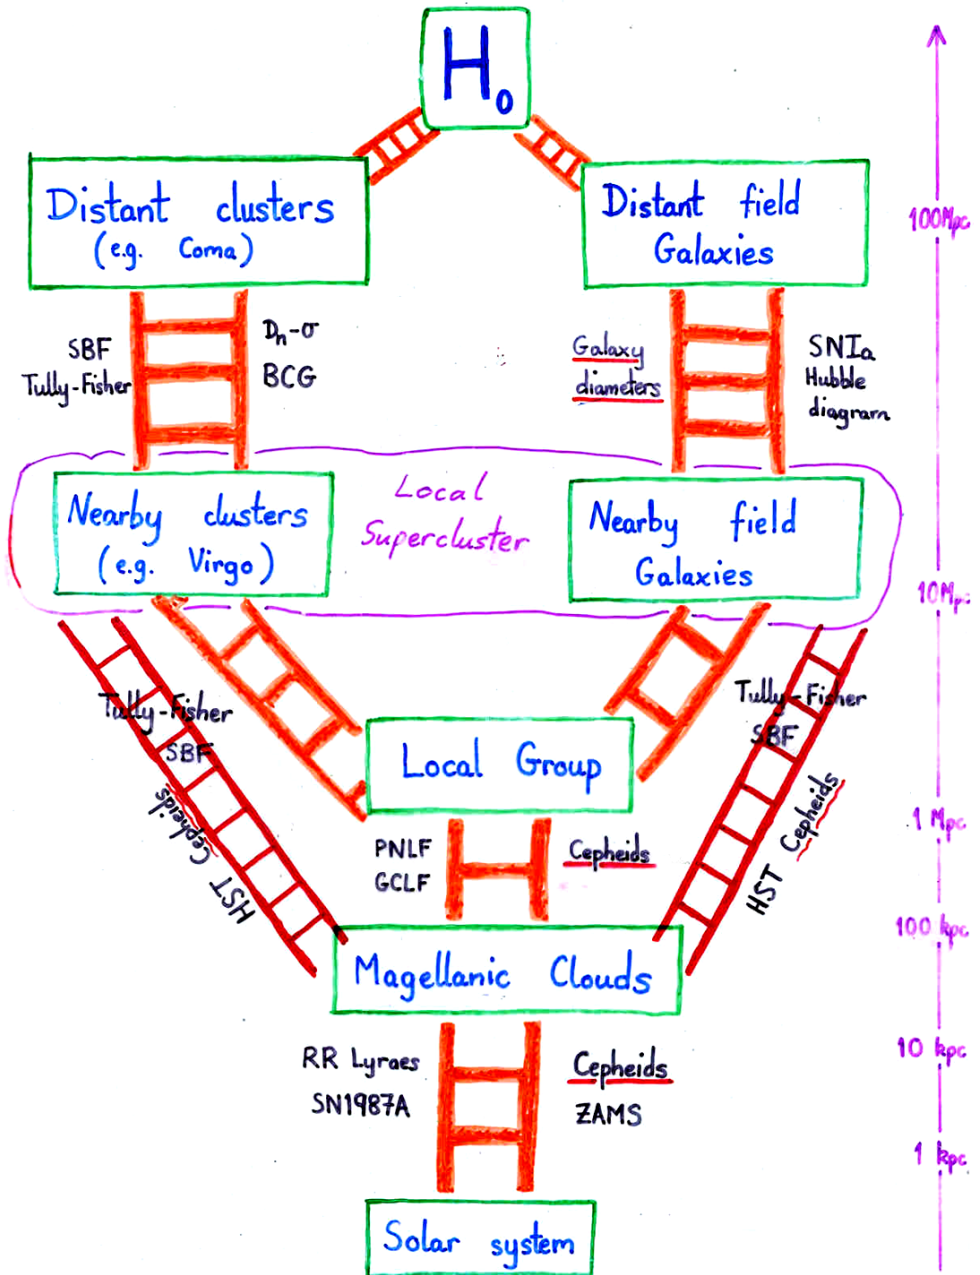 H₀
Distant clusters
(e.g. Coma)
Distant field
Galaxies
100Mpc
SBF
Tully-Fisher
Dn-σ
BCG
Galaxy
diameters
SNIa
Hubble
diagram
Local
Supercluster
Nearby clusters
(e.g. Virgo)
Nearby field
Galaxies
10Mpc
Tully-Fisher
SBF
HST Cepheids
Tully-Fisher
SBF
HST Cepheids
Local Group
1 Mpc
PNLF
GCLF
Cepheids
100 kpc
Magellanic Clouds
10 kpc
RR Lyraes
SN1987A
Cepheids
ZAMS
1 kpc
Solar system